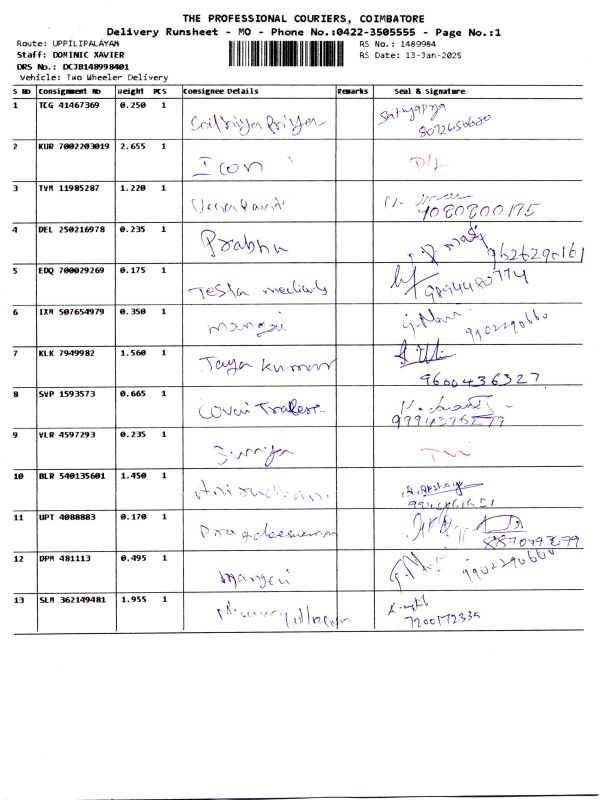 THE PROFESSIONAL COURIERS, COIMBATORE
Delivery Runsheet - MO - Phone No.:0422-3505555 - Page No.:1
Route: UPPILIPALAYAM RS No.: 1489984
Staff: DOMINIC XAVIER RS Date: 13-Jan-2025
DRS No.: DCJB148998401
Vehicle: Two Wheeler Delivery
S No Consignment No Weight PCS Consignee Details Remarks Seal & Signature
1 TCG 41467369 0.250 1 Priya Sathyapriya
2 KUR 7002203019 2.655 1 Icon D/L
3 TVM 11985287 1.220 1
4 DEL 250216978 0.235 1 Prabhu 9626290161
5 EDQ 700029269 0.175 1 Tesla medicals 9894480774
6 IXM 507654979 0.350 1 mangai 9902290660
7 KLK 7949982 1.560 1 Jaya kumar
9600436327
8 SVP 1593573 0.665 1 Covai Traders
9994376579
9 VLR 4597293 0.235 1 Surriya
10 BLR 540135601 1.450 1
11 UPT 4088883 0.170 1 Pragadeeswaran
8870493679
12 DPM 481113 0.495 1 mangai 9902290660
13 SLM 362149481 1.955 1
7200172335